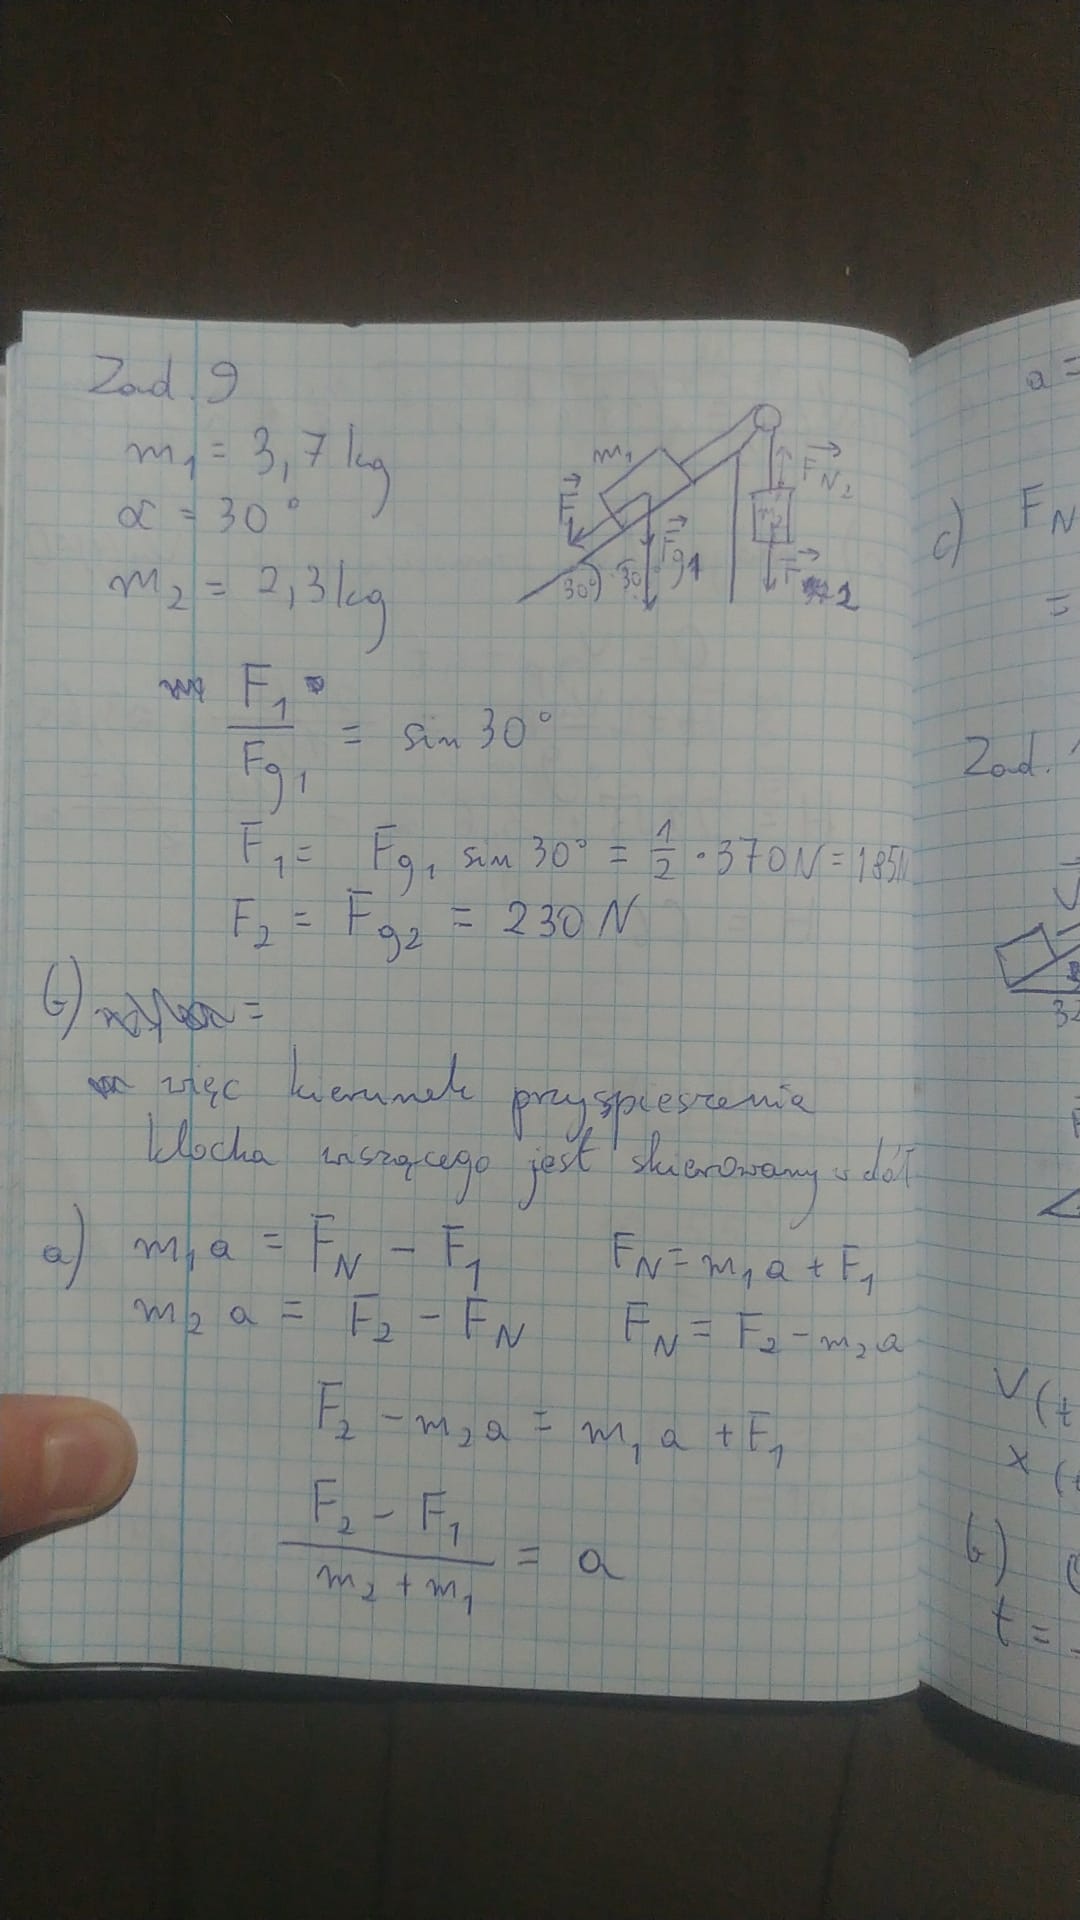 Zad. 9
m₁ = 3,7 kg
α = 30°
m₂ = 2,3 kg
m₁
F
30°
30°
Fg1
FN₂
m₂
F₁ / Fg₁ = sin 30°
F₁ = Fg₁ sin 30° = 1/2 · 370 N = 185N
F₂ = Fg2 = 230 N
b) =
więc kierunek przyspieszenia
klocka wiszącego jest skierowany w dół
a) m₁a = FN − F₁ FN = m₁a + F₁
m₂ a = F₂ − FN FN = F₂ − m₂a
F₂ − m₂a = m₁ a + F₁
(F₂ − F₁) / (m₂ + m₁) = a
a =
c) FN
=
Zad.
32
V(t
x (t
b)
t =